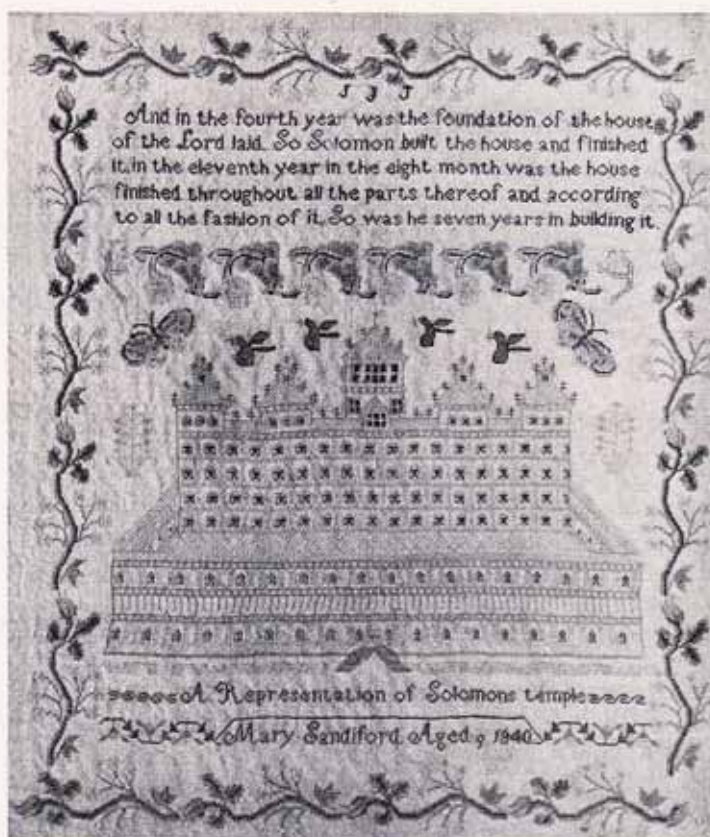 J J J
And in the fourth year was the foundation of the house
of the Lord laid. So Solomon built the house and finished
it, in the eleventh year in the eight month was the house
finished throughout all the parts thereof and according
to all the fashion of it. So was he seven years in building it.
A Representation of Solomons temple
Mary Sandiford Aged 9 1840